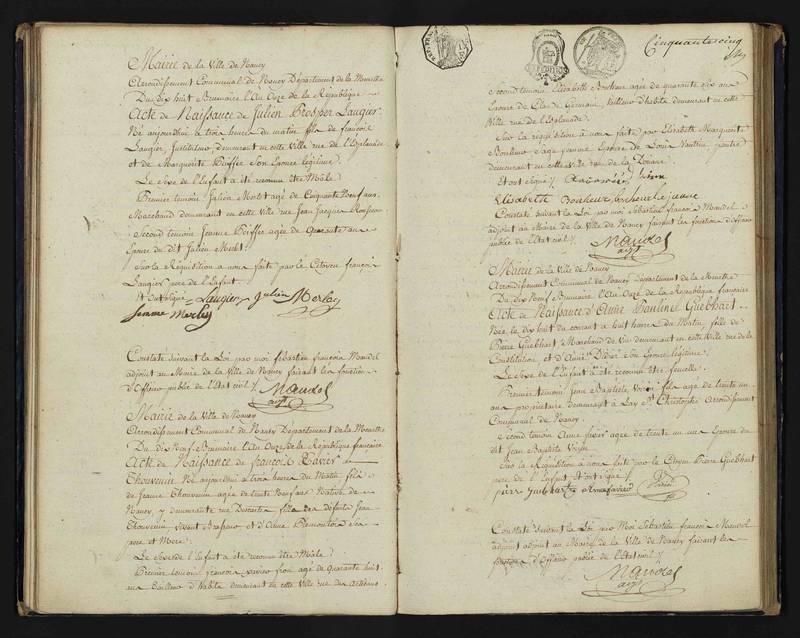 Mairie de la Ville de Nancy
Arrondissement Communal de Nancy Département de la Meurthe
Du dix huit Brumaire l'An Onze de la République
Acte de Naissance de Julien Prosper Laugier
Né aujourd'hui à trois heures du matin fils de françois
Laugier, Instituteur, demeurant en cette Ville rue de l'Esplanade
et de Marguerite Peiffer son Epouse légitime.
Le Sexe de l'Enfant a été reconnu être Mâle.
Premier temoin Julien agé de Cinquante Neuf ans
Marchand demeurant en cette Ville rue Jean Jacques Rousseau
Second temoin Jeanne Peiffer agée de Quarante ans
Epouse du dit Julien
Sur la Réquisition a nous faite par le Citoyen françois
Laugier pere de l'Enfant
Laugier Julien Merlay
femme Merlay
Constaté suivant la Loi par moi Sébastien françois Mandel
adjoint au Maire de la Ville de Nancy faisant les fonctions
d'Officier public de l'Etat civil /.
Mandel
adjt
Mairie de la Ville de Nancy
Arrondissement Communal de Nancy Département de la Meurthe
Du dix Neuf Brumaire l'An Onze de la République francaise
Acte de Naissance de françois Xavier
Thouvenin Né aujourd'hui a trois heures du Matin fils
de Jeanne Thouvenin agée de trente Neuf ans Native de
Nancy, y demeurante rue fille de défunts Jean
Thouvenin, vivant et d'Anne ses
pere et Mere.
Le Sexe de l'Enfant a été reconnu être Mâle.
Premier temoin françois agé de Quarante huit
ans Tailleur d'Habits demeurant en cette Ville rue des Artisans.
Cinquante cinq
Second temoin Elisabeth Bonheur agée de quarante ans
Epouse de Germain, tailleur d'habits demeurant en cette
Ville rue de l'Esplanade.
Sur la réquisition à nous faite par Elisabeth Marguerite
Bonheur Sage femme Epouse de Louis peintre
demeurant en cette ville rue de la Douane
Et ont signé /.
Elisabeth Bonheur
Constaté suivant la Loi par moi Sébastien françois Mandel
adjoint au Maire de la Ville de Nancy faisant les fonctions d'Officier
public de l'Etat civil /.
Mandel
adjt
Mairie de la Ville de Nancy
Arrondissement Communal de Nancy Département de la Meurthe
Du dix Neuf Brumaire l'An Onze de la République francaise
Acte de Naissance d'Anne Pauline Guebhart
Née le dix huit du courant a huit heures du Matin fille de
Pierre Guebhart Marchand de Vin demeurant en cette Ville rue de la
Constitution et d'Anne Didier son Epouse légitime.
Le Sexe de l'Enfant a été reconnu être femelle.
Premier temoin Jean Baptiste fils agé de trente un
ans proprietaire demeurant à Lay St. Christophe Arrondissement
Communal de Nancy.
Second temoin Anne agée de trente un ans Epouse du
dit Jean Baptiste
Sur la Réquisition à nous faite par le Citoyen Pierre Guebhart
pere de l'Enfant Et ont signé /.
pierre Guebhart
Constaté suivant la Loi par Moi Sébastien françois Mandel
adjoint au Maire de la Ville de Nancy faisant les
fonctions d'Officier public de l'Etat civil /.
Mandel
adjt